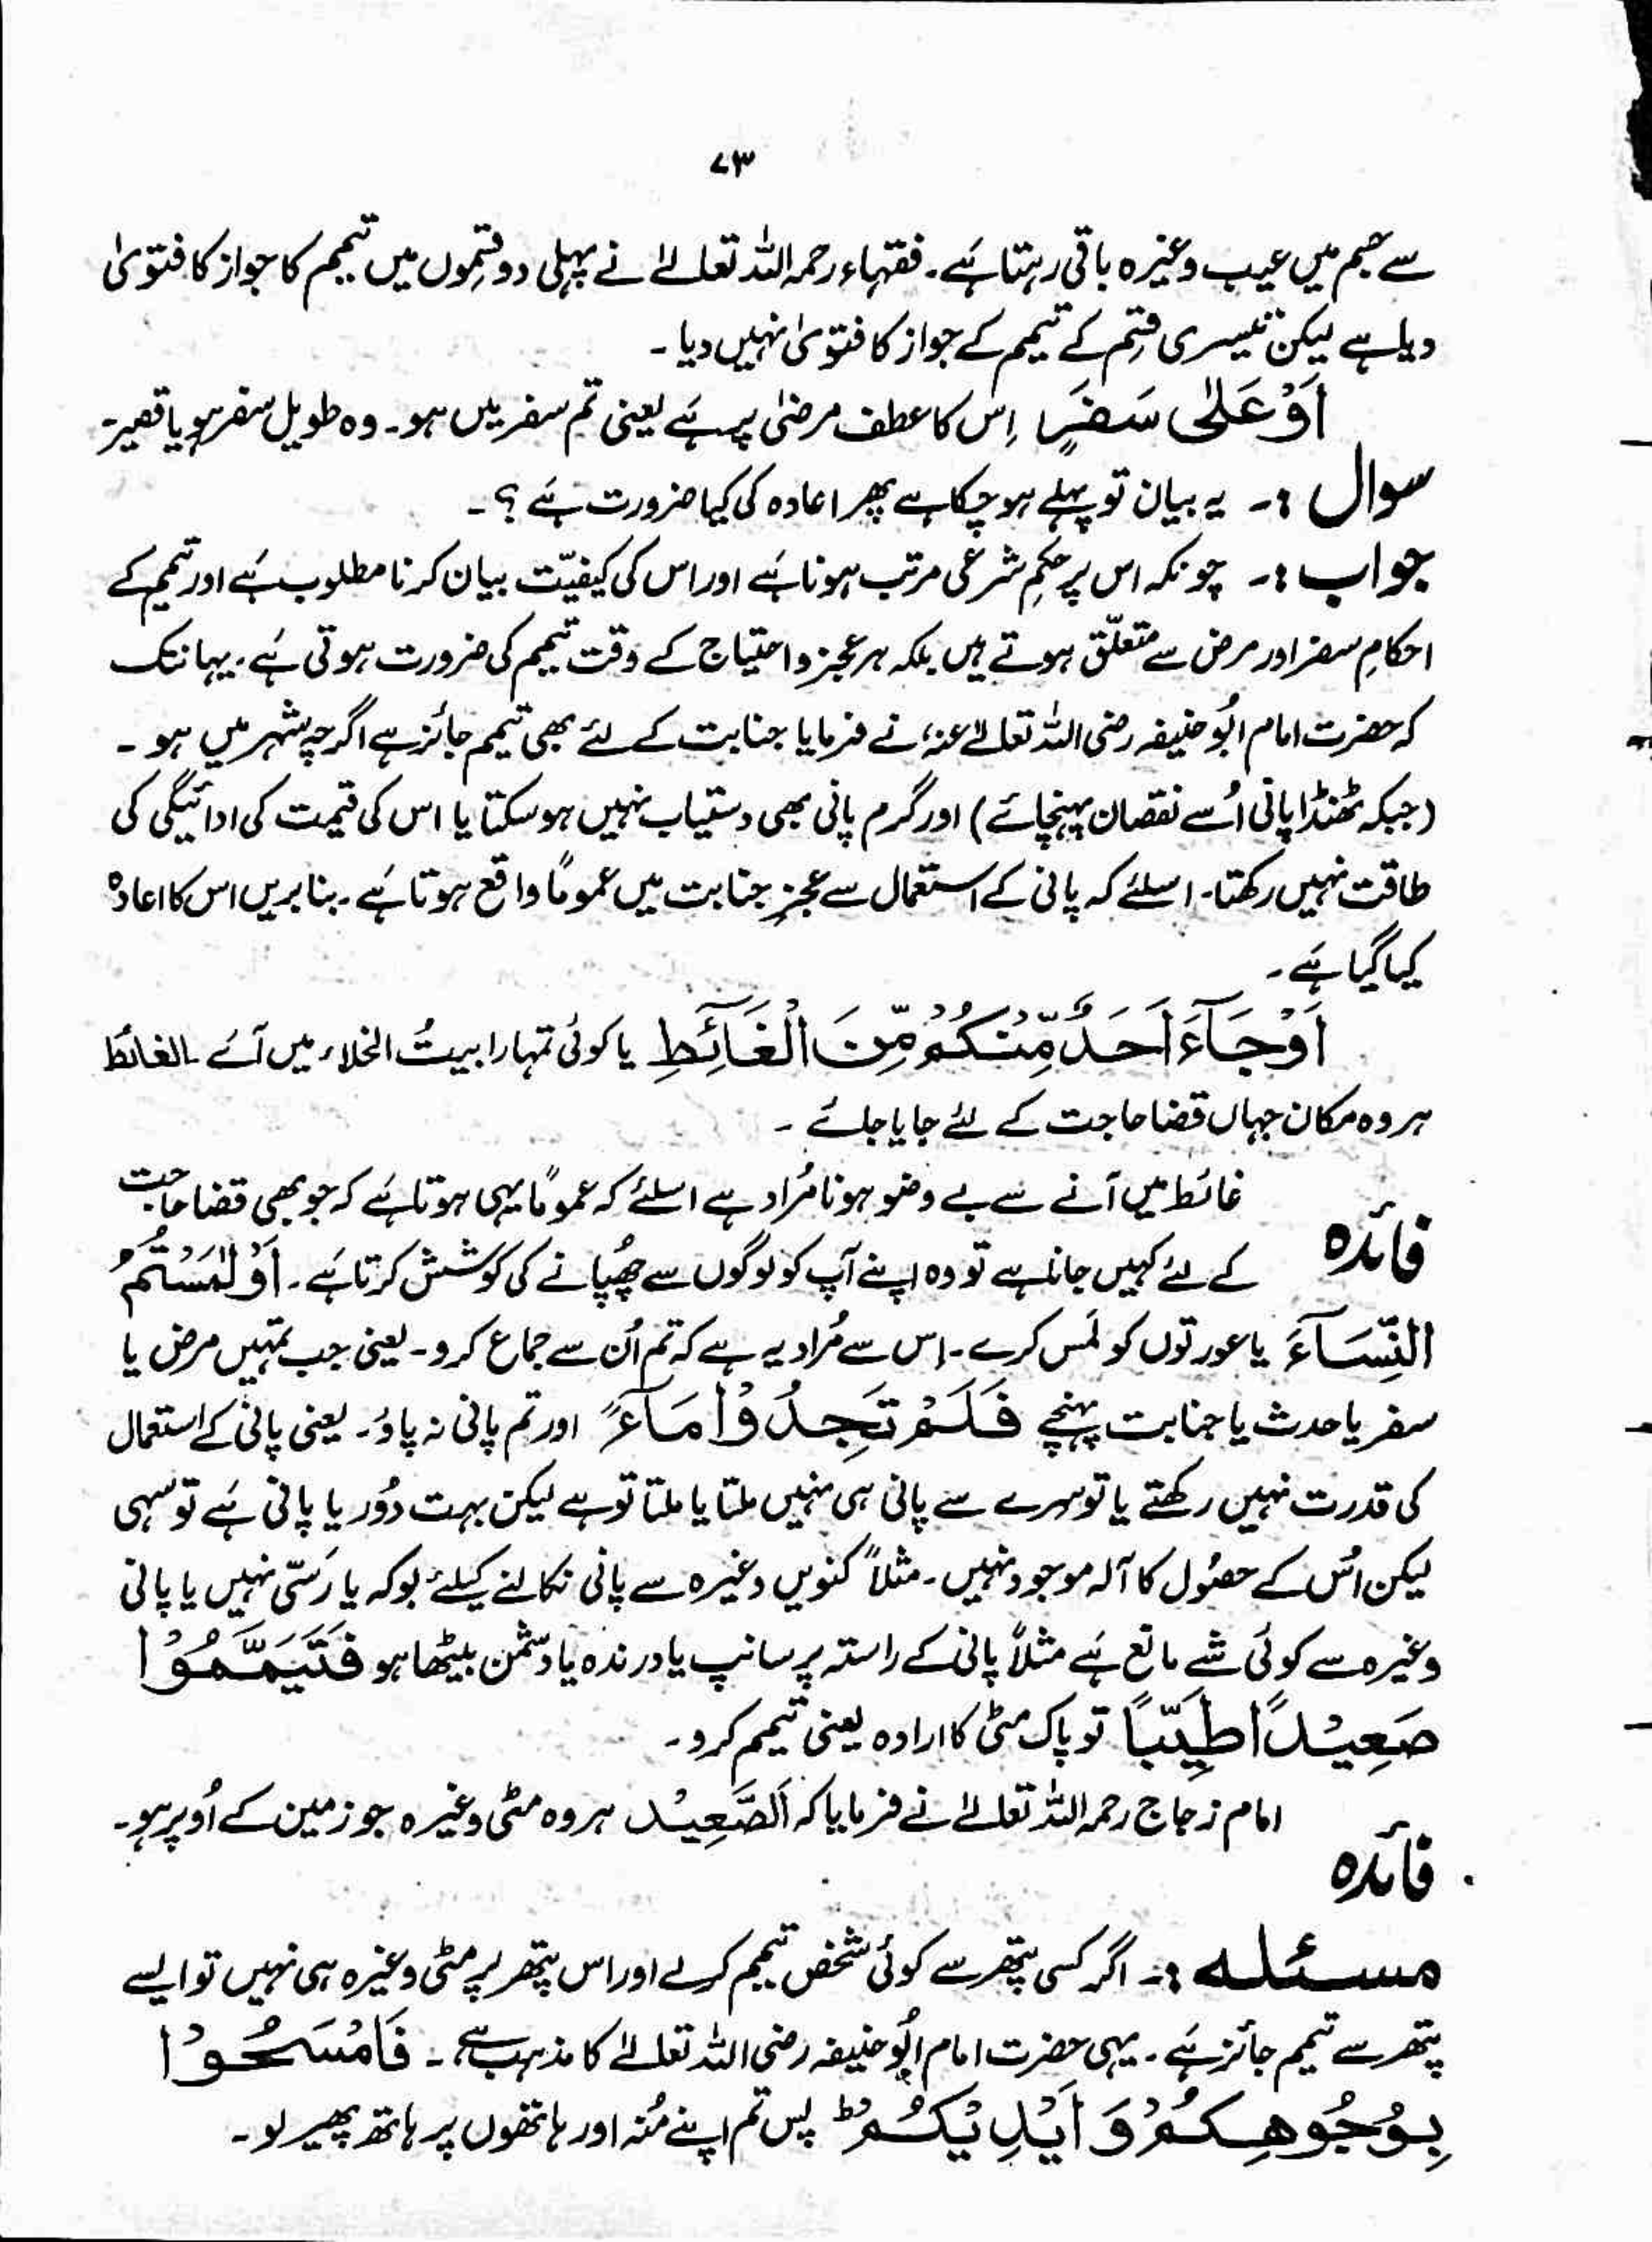 ۷۳
سے جسم میں عیب وغیرہ باقی رہتا ہے۔ فقہاء رحمہ اللہ تعالےٰ نے پہلی دو قسموں میں تیمم کا جواز کا فتویٰ
دیا ہے لیکن تیسری قسم کے تیمم کے جواز کا فتویٰ نہیں دیا ۔
اَوْ عَلٰی سَفَرٍ اِس کا عطف مرضیٰ پر ہے یعنی تم سفر میں ہو۔ وہ طویل سفر ہو یا قصیر۔
سوال :۔ یہ بیان تو پہلے ہو چکا ہے پھر اعادہ کی کیا ضرورت ہے ؟ ۔
جواب :۔ چونکہ اس پر حکمِ شرعی مرتب ہونا ہے اور اس کی کیفیّت بیان کرنا مطلوب ہے اور تیمم کے
احکامِ سفر اور مرض سے متعلّق ہوتے ہیں بلکہ ہر عجز و احتیاج کے وقت تیمم کی ضرورت ہوتی ہے۔ یہانتک
کہ حضرت امام ابُو حنیفہ رضی اللہ تعالےٰ عنہ، نے فرمایا جنابت کے لئے بھی تیمم جائز ہے اگرچہ شہر میں ہو ۔
(جبکہ ٹھنڈا پانی اُسے نقصان پہنچائے) اور گرم پانی بھی دستیاب نہیں ہو سکتا یا اس کی قیمت کی ادائیگی کی
طاقت نہیں رکھتا۔ اسلئے کہ پانی کے استعمال سے عجزِ جنابت میں عموماً واقع ہوتا ہے۔ بنا بریں اس کا اعادہ
کیا گیا ہے ۔
اَوْ جَآءَ اَحَدٌ مِّنْکُمْ مِّنَ الْغَآئِطِ یا کوئی تمہارا بیتُ الخلاء میں آئے ۔الغائط
ہر وہ مکان جہاں قضا حاجت کے لئے جایا جائے ۔
غائط میں آنے سے بے وضو ہونا مُراد ہے اسلئے کہ عموماً یہی ہوتا ہے کہ جو بھی قضا حاجت
فائدہ کے لئے کہیں جاتا ہے تو وہ اپنے آپ کو لوگوں سے چھُپانے کی کوشش کرتا ہے ۔ اَوْ لٰمَسْتُمُ
النِّسَآءَ یا عورتوں کو لَمس کرے ۔ اِس سے مُراد یہ ہے کہ تم اُن سے جماع کرو۔ یعنی جب تمہیں مرض یا
سفر یا حدث یا جنابت پہنچے فَلَمْ تَجِدُوْا مَآءً اور تم پانی نہ پاؤ۔ یعنی پانی کے استعمال
کی قدرت نہیں رکھتے یا تو سرے سے پانی ہی نہیں ملتا یا ملتا تو ہے لیکن بہت دُور یا پانی ہے تو سہی
لیکن اُس کے حصُول کا آلہ موجود نہیں ۔ مثلاً کنویں وغیرہ سے پانی نکالنے کیلئے بوکہ یا رَسّی نہیں یا پانی
وغیرہ سے کوئی شے مانع ہے مثلاً پانی کے راستہ پر سانپ یا درندہ یا دشمن بیٹھا ہو فَتَیَمَّمُوْا
صَعِیْدًا طَیِّبًا تو پاک مٹی کا ارادہ یعنی تیمم کرو ۔
امام زجاج رحمہ اللہ تعالےٰ نے فرمایا کہ اَلصَّعِیْد ہر وہ مٹی وغیرہ جو زمین کے اُوپر ہو۔
فائدہ
مسئلہ :۔ اگر کسی پتھر سے کوئی شخص تیمم کرے اور اس پتھر پر مٹی وغیرہ ہی نہیں تو ایسے
پتھر سے تیمم جائز ہے ۔ یہی حضرت امام ابُو حنیفہ رضی اللہ تعالےٰ کا مذہب ہے ۔ فَامْسَحُوْا
بِوُجُوْھِکُمْ وَ اَیْدِیْکُمْ ط پس تم اپنے مُنہ اور ہاتھوں پر ہاتھ پھیر لو ۔